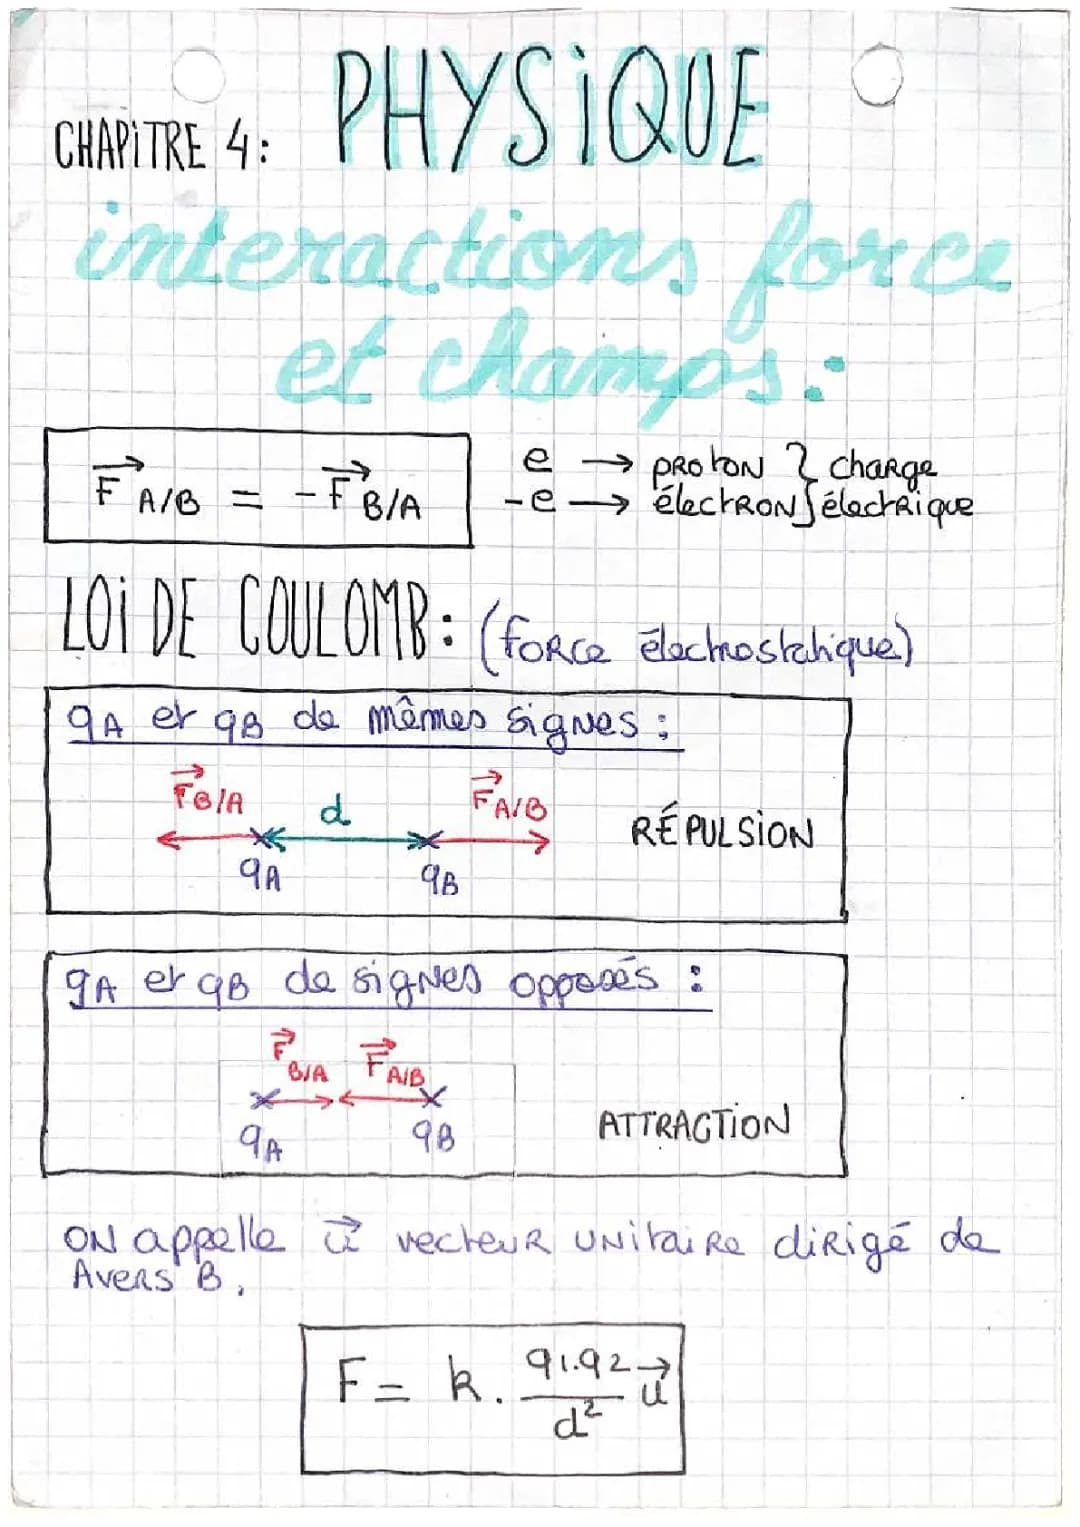 PHYSiQUE
CHAPiTRE 4:
interactions force
et champs :
F⃗ A/B = -F⃗ B/A
e → PROTON } charge
-e → électRON } électRique
LOi DE COULOMB : (FORCE électrostatique)
qA et qB de mêmes signes :
F⃗B/A d F⃗A/B
RÉPULSiON
qA qB
qA et qB de signes opposés :
F⃗B/A F⃗A/B
ATTRACTiON
qA qB
ON appelle u⃗ vecteuR UNitaiRe diRigé de
A vers B.
F = k. q1.q2/d² u⃗